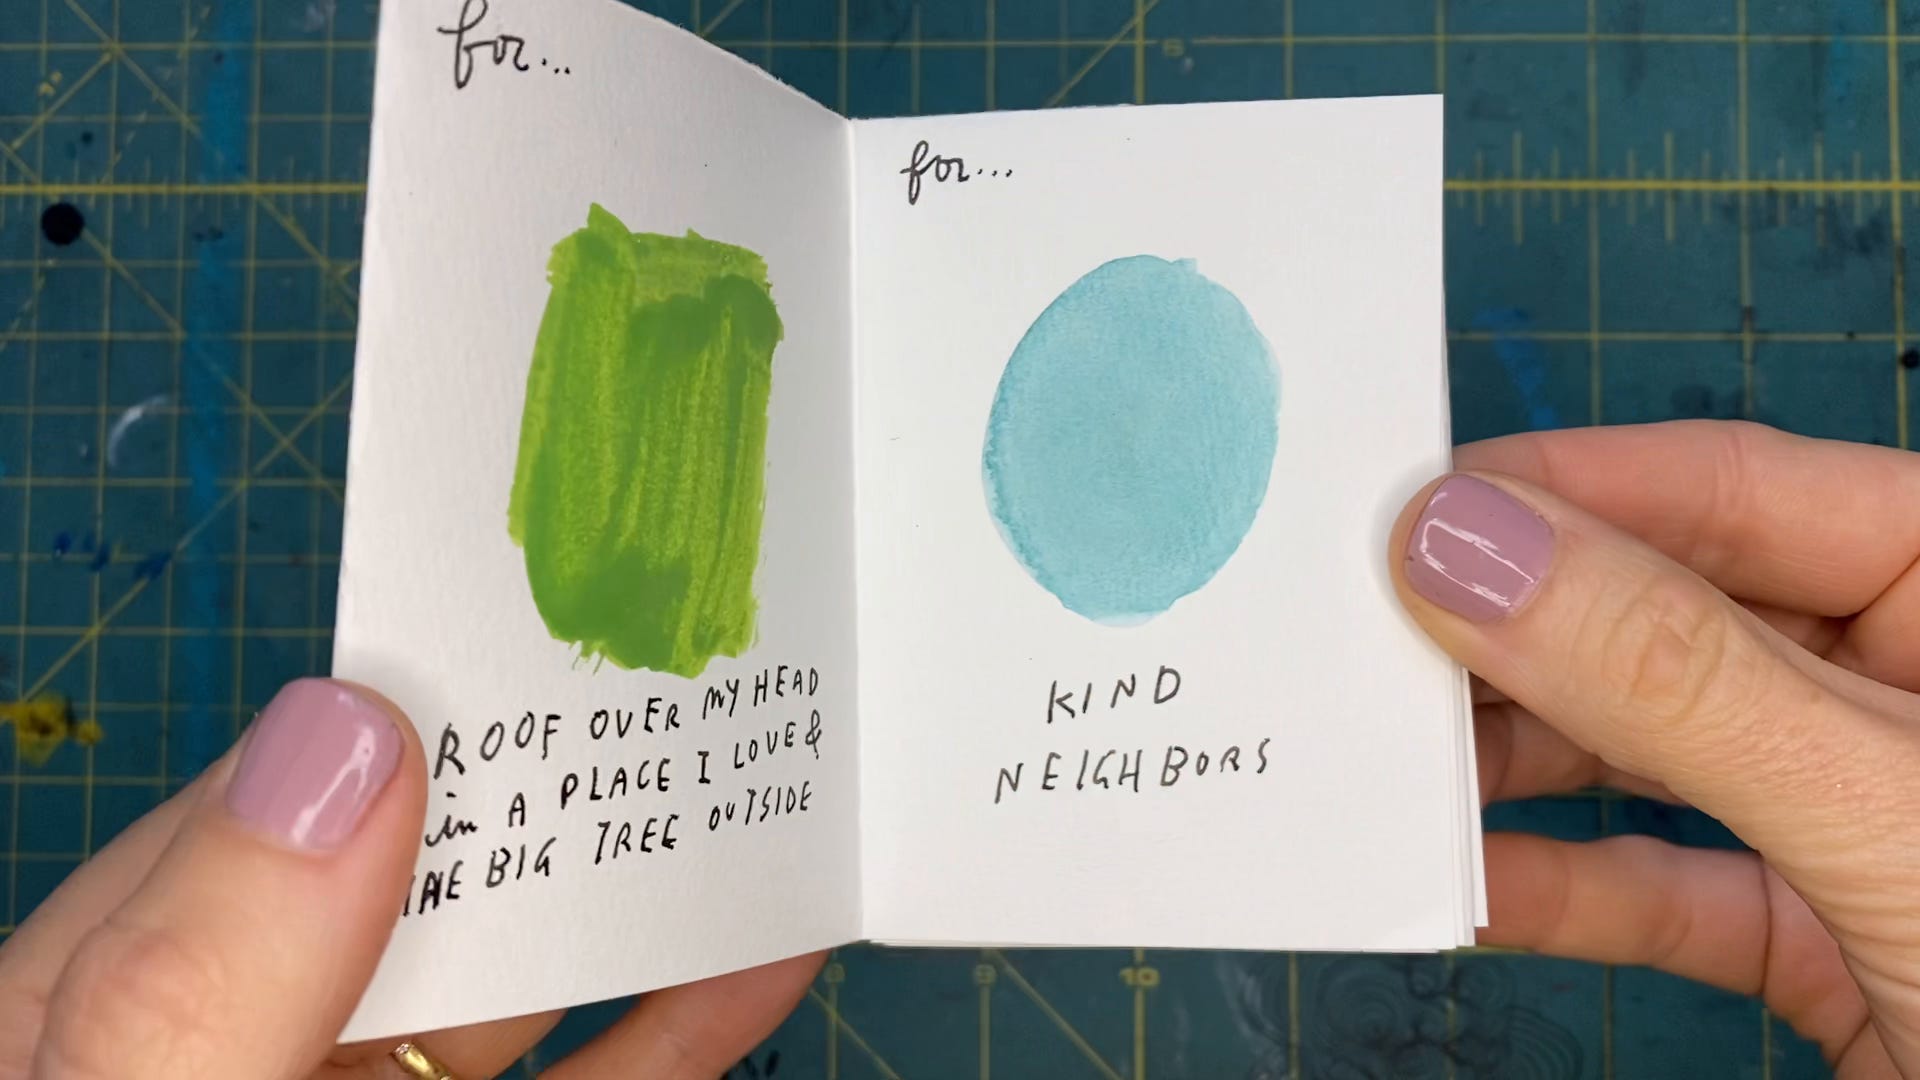 for...
ROOF OVER MY HEAD
in A PLACE I LOVE &
THE BIG TREE OUTSIDE
for...
KIND
NEIGHBORS
8
9
10